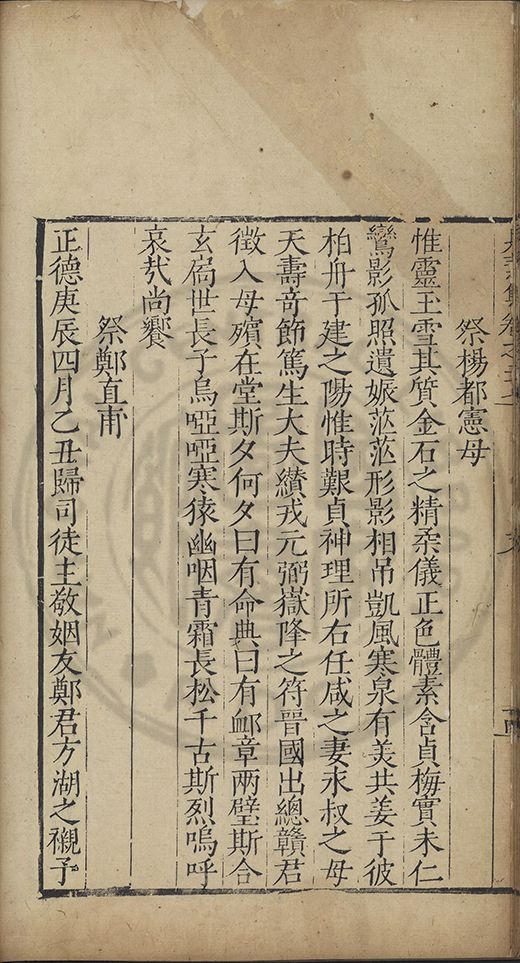 祭楊都憲母
惟靈玉雪其質金石之精柔儀正色體素含貞梅實未仁
鸞影孤照遺娠茫茫形影相吊凱風寒泉有美共姜于彼
柏舟于建之陽惟時艱貞神理所右任咸之妻永叔之母
天壽奇節篤生大夫纘戎元弼嶽降之符晉國出總贛君
徵入母殯在堂斯夕何夕曰有命典曰有卹章兩璧斯合
玄扄世長子烏啞啞寒猿幽咽青霜長松千古斯烈嗚呼
哀㦲尚饗
祭鄭直甫
正德庚辰四月乙丑歸司徒主敬姻友鄭君方湖之櫬予